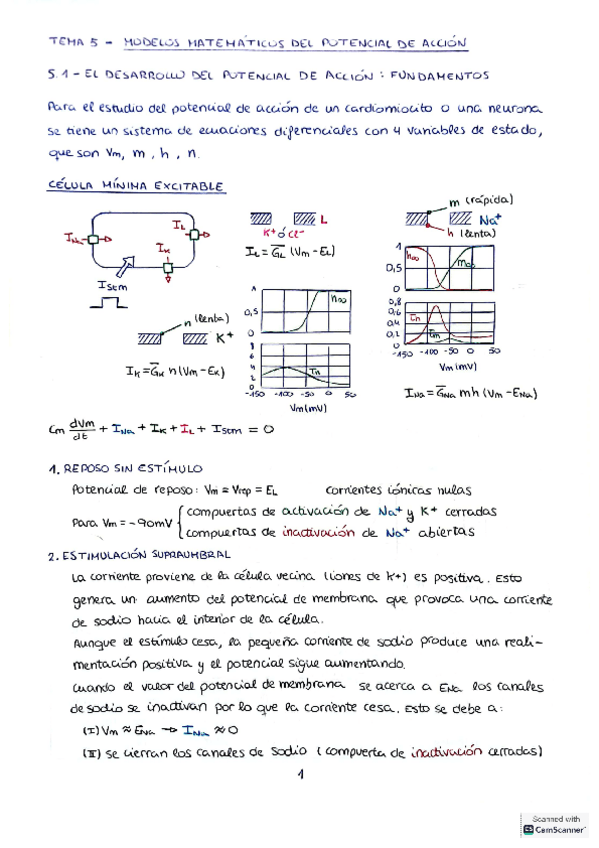 TEMA 5 - MODELOS MATEMÁTICOS DEL POTENCIAL DE ACCIÓN
5.1 - EL DESARROLLO DEL POTENCIAL DE ACCIÓN : FUNDAMENTOS
Para el estudio del potencial de acción de un cardiomiocito o una neurona
se tiene un sistema de ecuaciones diferenciales con 4 variables de estado,
que son Vm, m, h, n.
CÉLULA MÍNIMA EXCITABLE
I_Na
I_K
I_L
I_stm
L
K+ ó Cl-
I_L = G̅_L (Vm - E_L)
m (rápida)
Na+
h (lenta)
1
0,5
0
h∞
m∞
0,8
0,6
0,4
0,2
0
τh
τm
-150 -100 -50 0 50
Vm (mV)
I_Na = G̅_Na mh (Vm - E_Na)
n (lenta)
K+
I_K = G̅_K n (Vm - E_K)
1
0,5
0
n∞
8
6
4
2
0
τn
-150 -100 -50 0 50
Vm (mV)
Cm dVm/dt + I_Na + I_K + I_L + I_stm = 0
1. REPOSO SIN ESTÍMULO
Potencial de reposo: Vm = Vrep = E_L corrientes iónicas nulas
Para Vm = -90mV { compuertas de activación de Na+ y K+ cerradas
compuertas de inactivación de Na+ abiertas
2. ESTIMULACIÓN SUPRAUMBRAL
La corriente proviene de la célula vecina (iones de K+) es positiva. Esto
genera un aumento del potencial de membrana que provoca una corriente
de sodio hacia el interior de la célula.
Aunque el estímulo cesa, la pequeña corriente de sodio produce una reali-
mentación positiva y el potencial sigue aumentando.
Cuando el valor del potencial de membrana se acerca a E_Na los canales
de sodio se inactivan por lo que la corriente cesa. Esto se debe a:
(I) Vm ≈ E_Na → I_Na ≈ 0
(II) se cierran los canales de sodio (compuerta de inactivación cerradas)
1
Scanned with
CS CamScanner